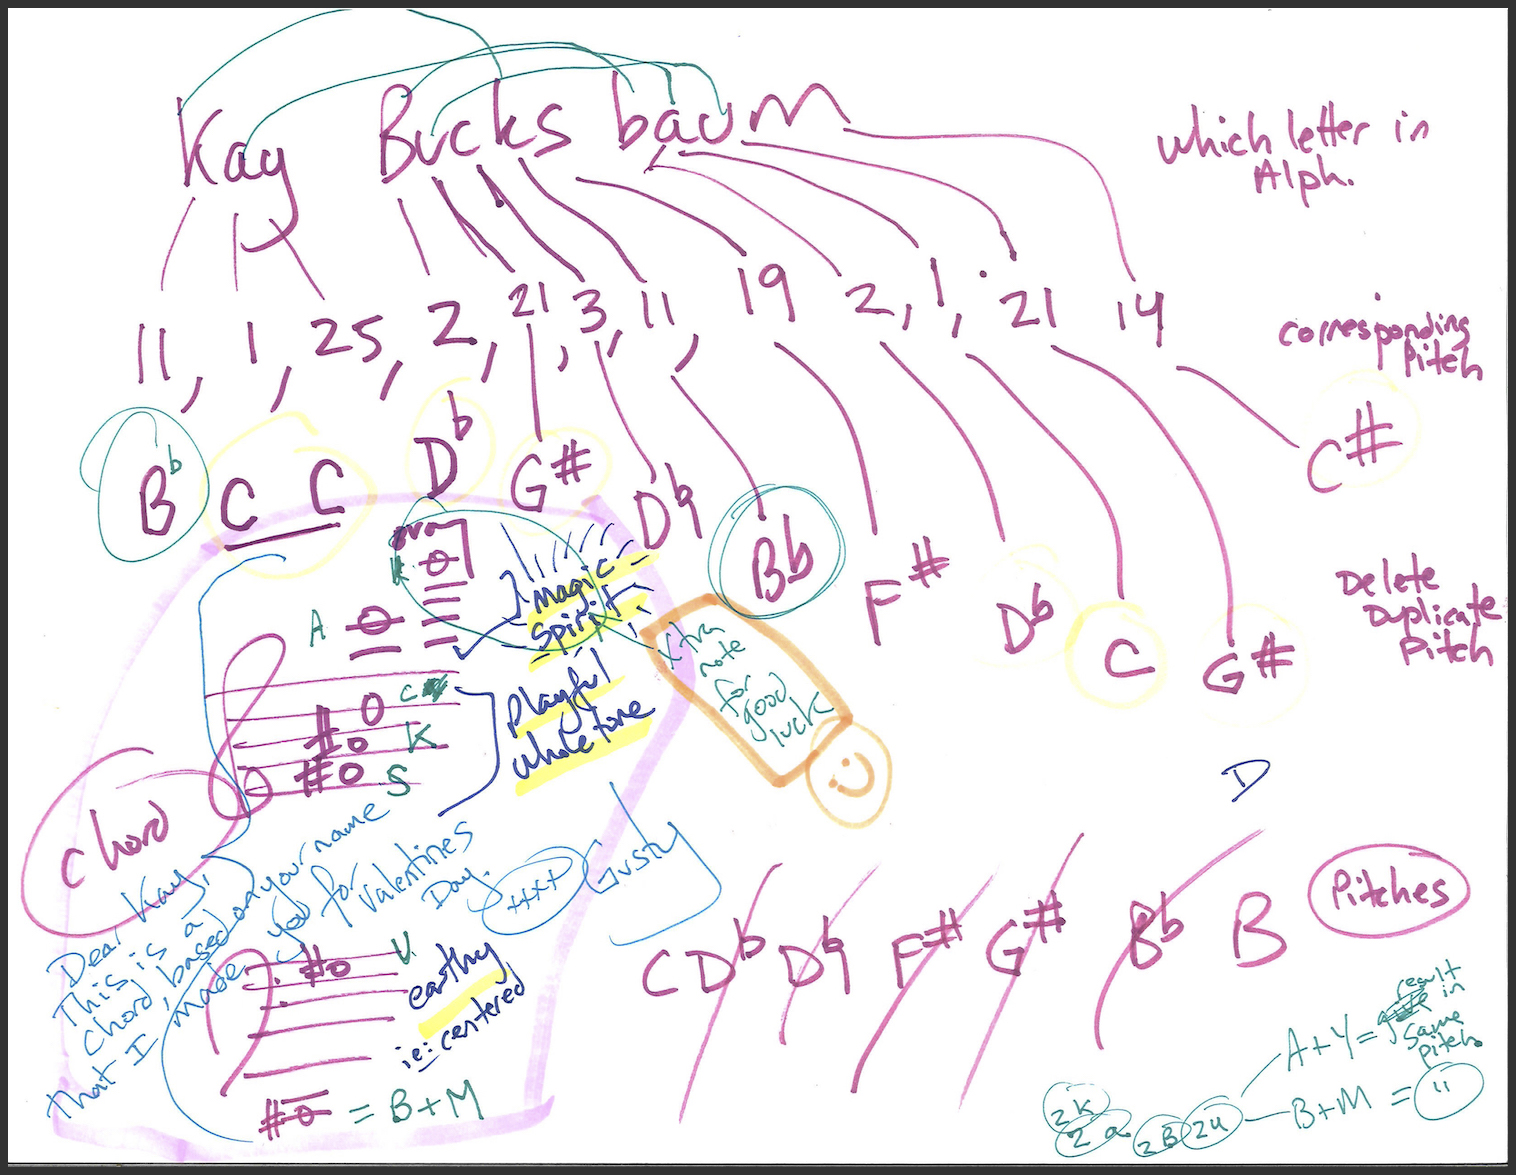 Kay Bucksbaum
which letter in
Alph.
11, 1, 25, 2, 21, 3, 11, 19 2, 1, 21 14
corresponding
Pitch
Bb C C Db G# D♮ Bb F# Db C G# C#
Delete
Duplicate
Pitch
8va
K
A
C
K
S
Magic
Spirit
Playful
whole tone
xtra
note
for
good
luck
chord
Dear Kay,
This is a
chord, based on your name
that I made you for
Valentines
Day.
++++
Gusty
U
earthy
ie: centered
= B+M
D
C Db D♮ F# G# Bb B
Pitches
A+Y = result
in
same
pitch.
B+M = "
2K
2a
2B
2U